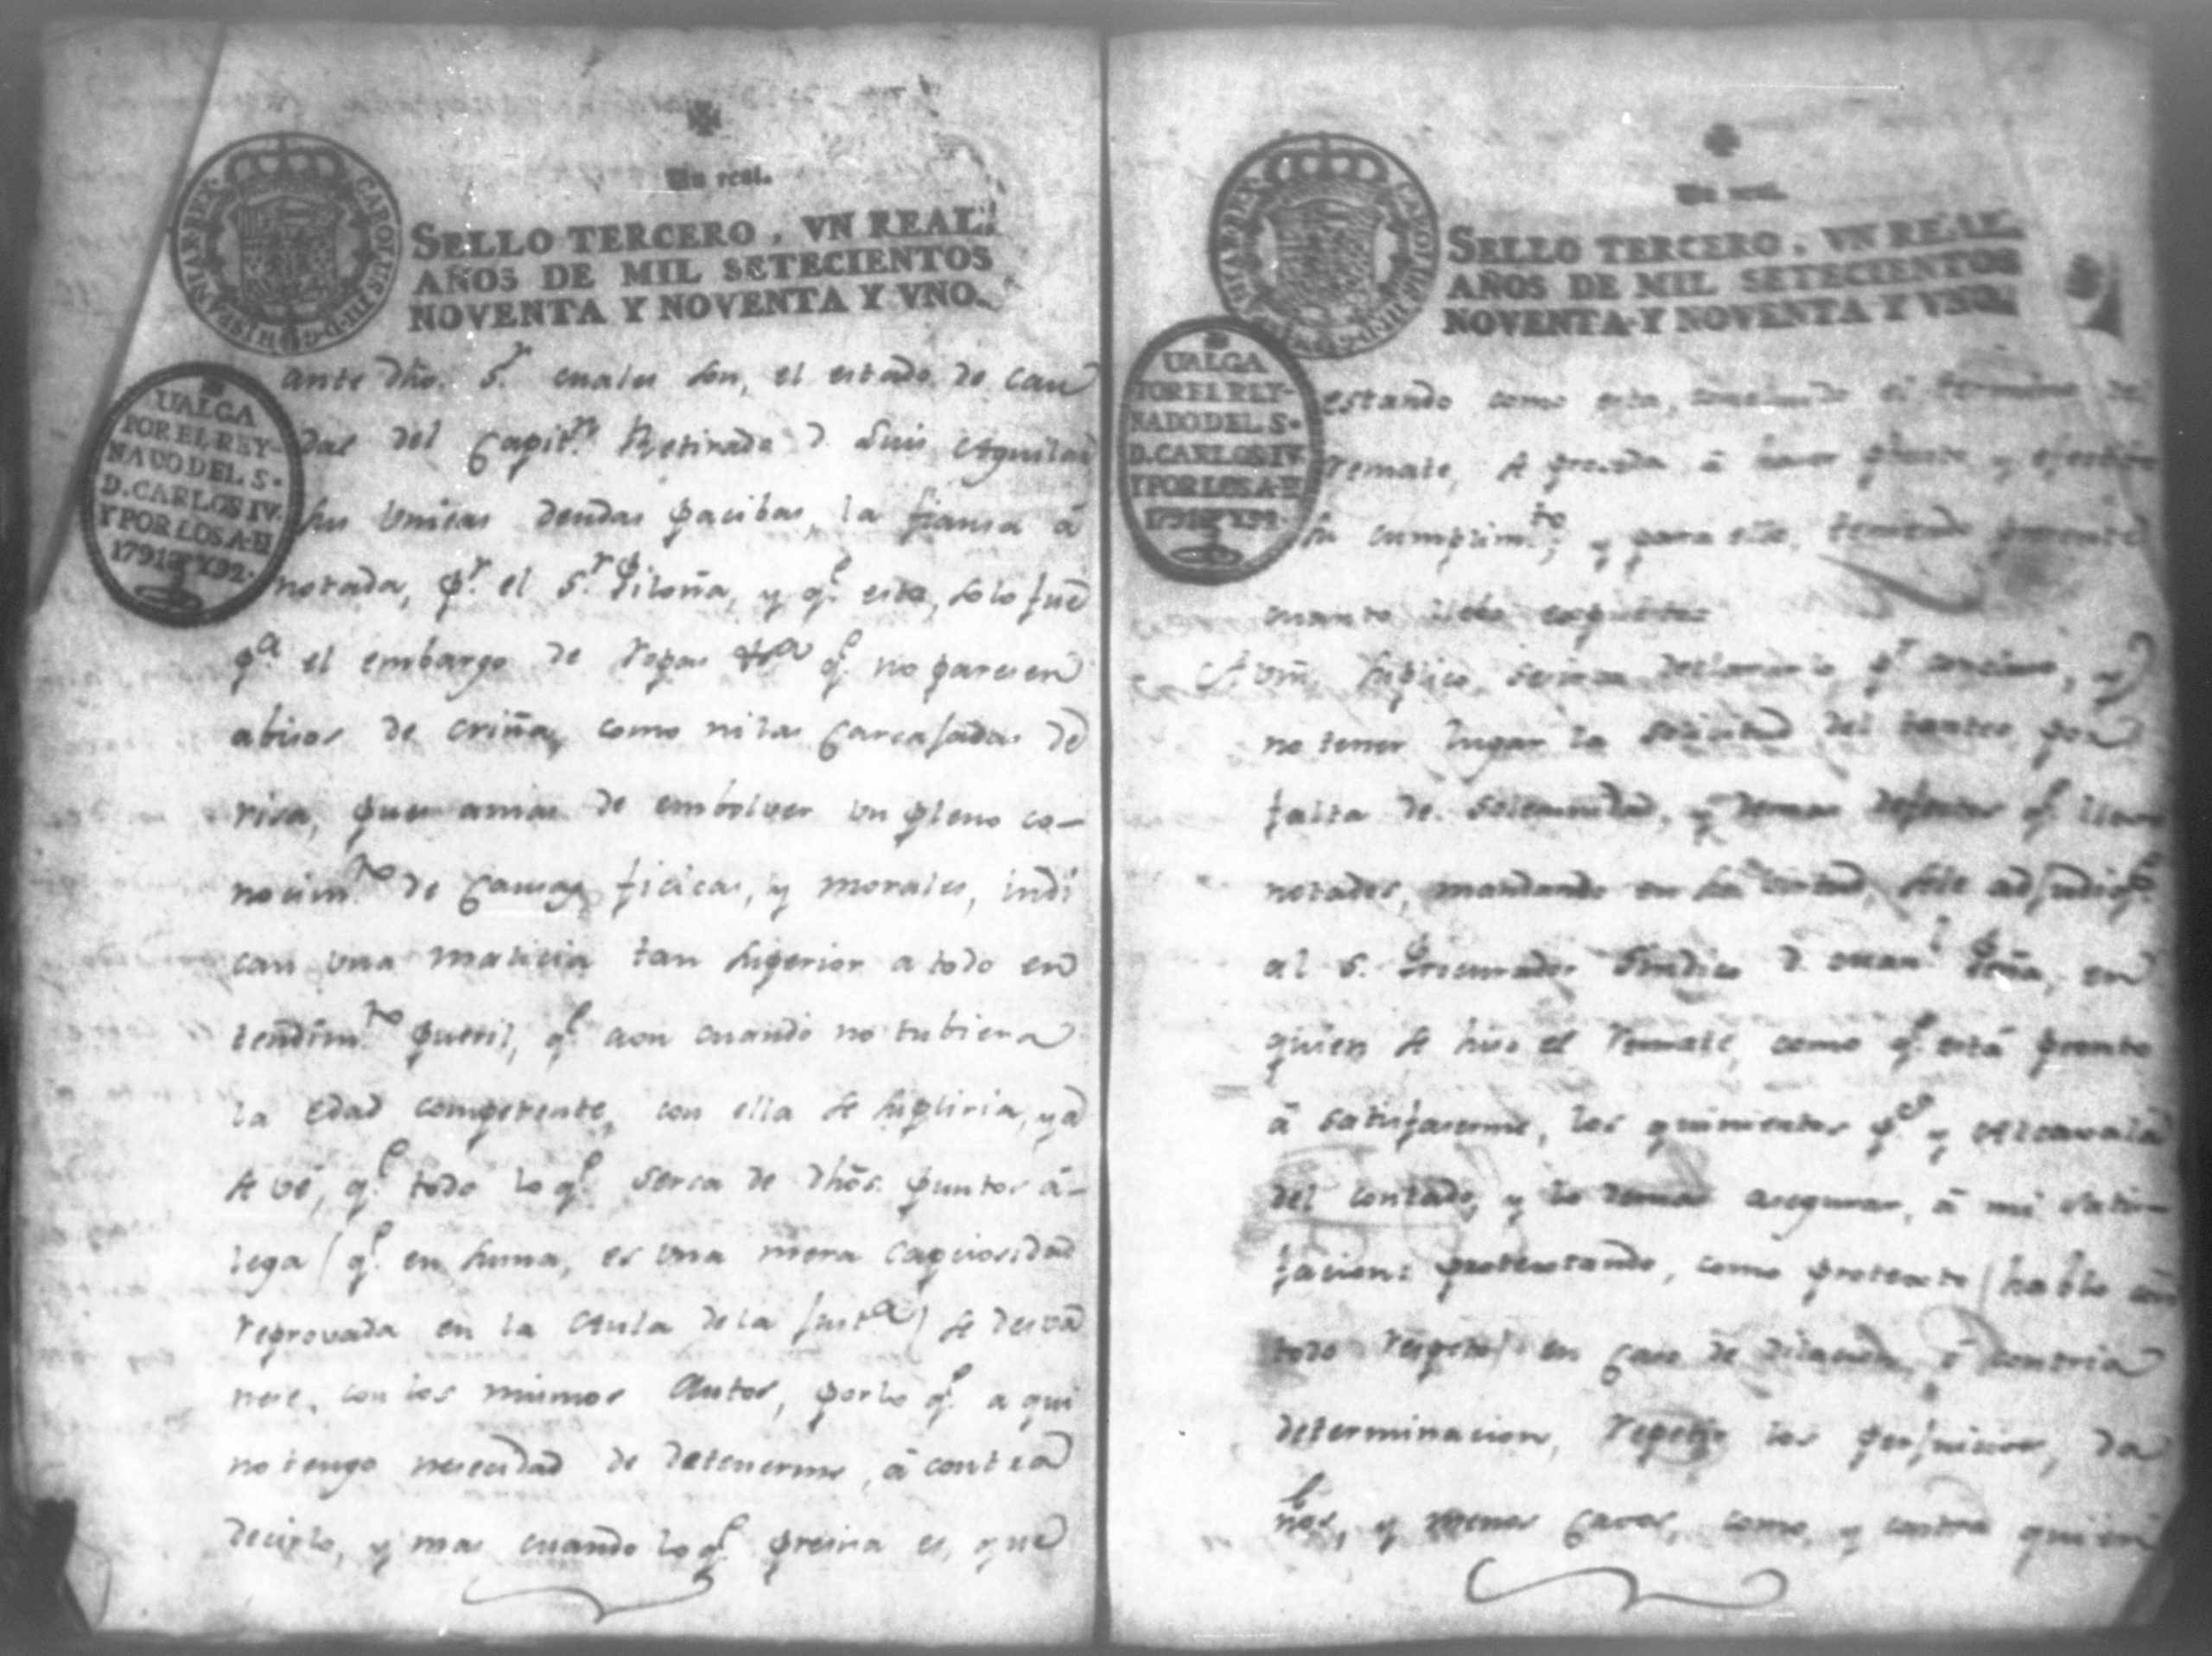 Un real.
SELLO TERCERO, VN REAL:
AÑOS DE MIL SETECIENTOS
NOVENTA Y NOVENTA Y VNO.
CAROLUS III D G HISPANIAR REX
UALGA
POR EL REY-
NADO DEL S.
D. CARLOS IV.
Y POR LOS A. D
1791 Y 92.
ante dho. S.r cuales son, el estado de cau
dal del Capit.n Retirado D. Luis Aguilar
sus unicas deudas pacibas, la fiansa á
notada, p.r el S.r Piloña, y q.e esta, solo fue
p.a el embargo de ropas q.e no paresen
abisos de criña, como ni las carcajadas de
risa, pues amas de embolver un pleno co-
nocim.to de causas ficicas, y morales, indi
can una malicia tan superior a todo en
tendim.to pueril, q.e aun cuando no tubiera
la edad competente, con ella se supliria, ya
se vé, q.e todo lo q.e serca de dhos. puntos á-
lega (q.e en suma, es una mera capciosidad
reprovada en la Aula de la Just.a) se desva
nese, con los mismos Autos, por lo q.e aqui
no tengo nesecidad de detenerme, á contra
decirlo, y mas cuando lo q.e presisa es, que
SELLO TERCERO, VN REAL
AÑOS DE MIL SETECIENTOS
NOVENTA Y NOVENTA Y VNO.
UALGA
POR EL REY-
NADO DEL S.
D. CARLOS IV.
Y POR LOS A. D
1791 Y 92.
estando como esta, el termino del
remate, se proceda á haser y efectivo
su cumplim.to, y para ello, teniendo presente
cuanto llebo expuesto
A Vm. suplico, se sirva declararlo p.r concluso, y
no tener lugar la solicitud del tanteo por
falta de solemnidad, y demas defectos q.e llevo
notados, mandando en su virtud, sele adjudiq.e
al S. Procurador Sindico D. Man.l Peña, en
quien se hiso el remate, como q.e está pronto
á satisfaserme, los quinientos p.s y Alcavala
del contado, y lo demas asegurar, á mi satis-
facion: protestando, como protesto (hablo con
todo respeto) en caso de dilacion, ó contria
determinacion, repetir los perjuicios, da
ños, y menos cavos, como, y contra quien